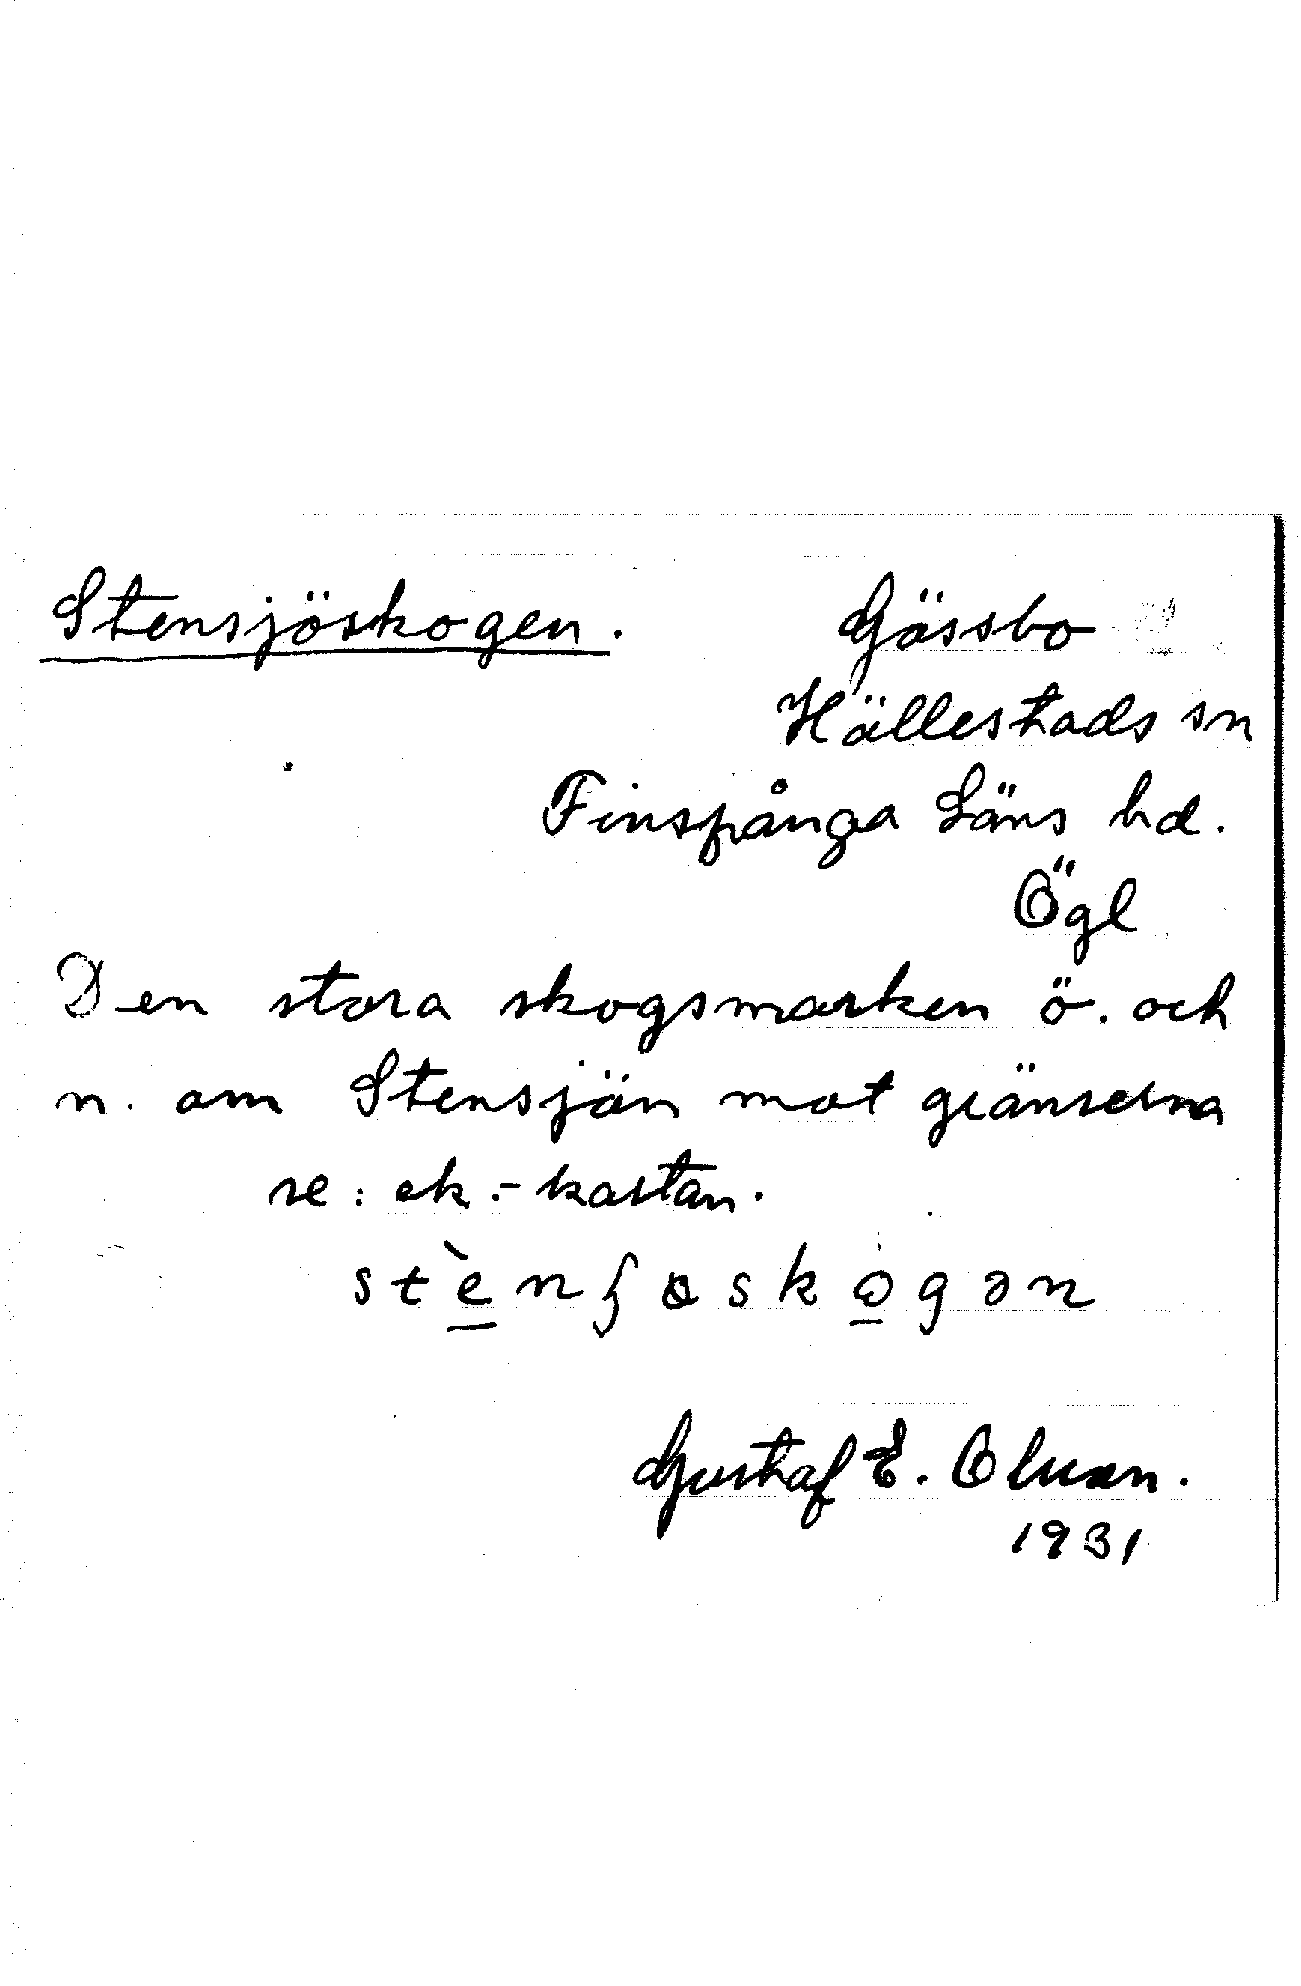 Stensjöskogen. Gässbo
Hällestads sn
Finspånga Läns hd.
Ögl
Den stora skogsmarken ö. och
n. om Stensjön mot gränserna
se: ek.- kartan.
Gustaf E. Olsson.
1931